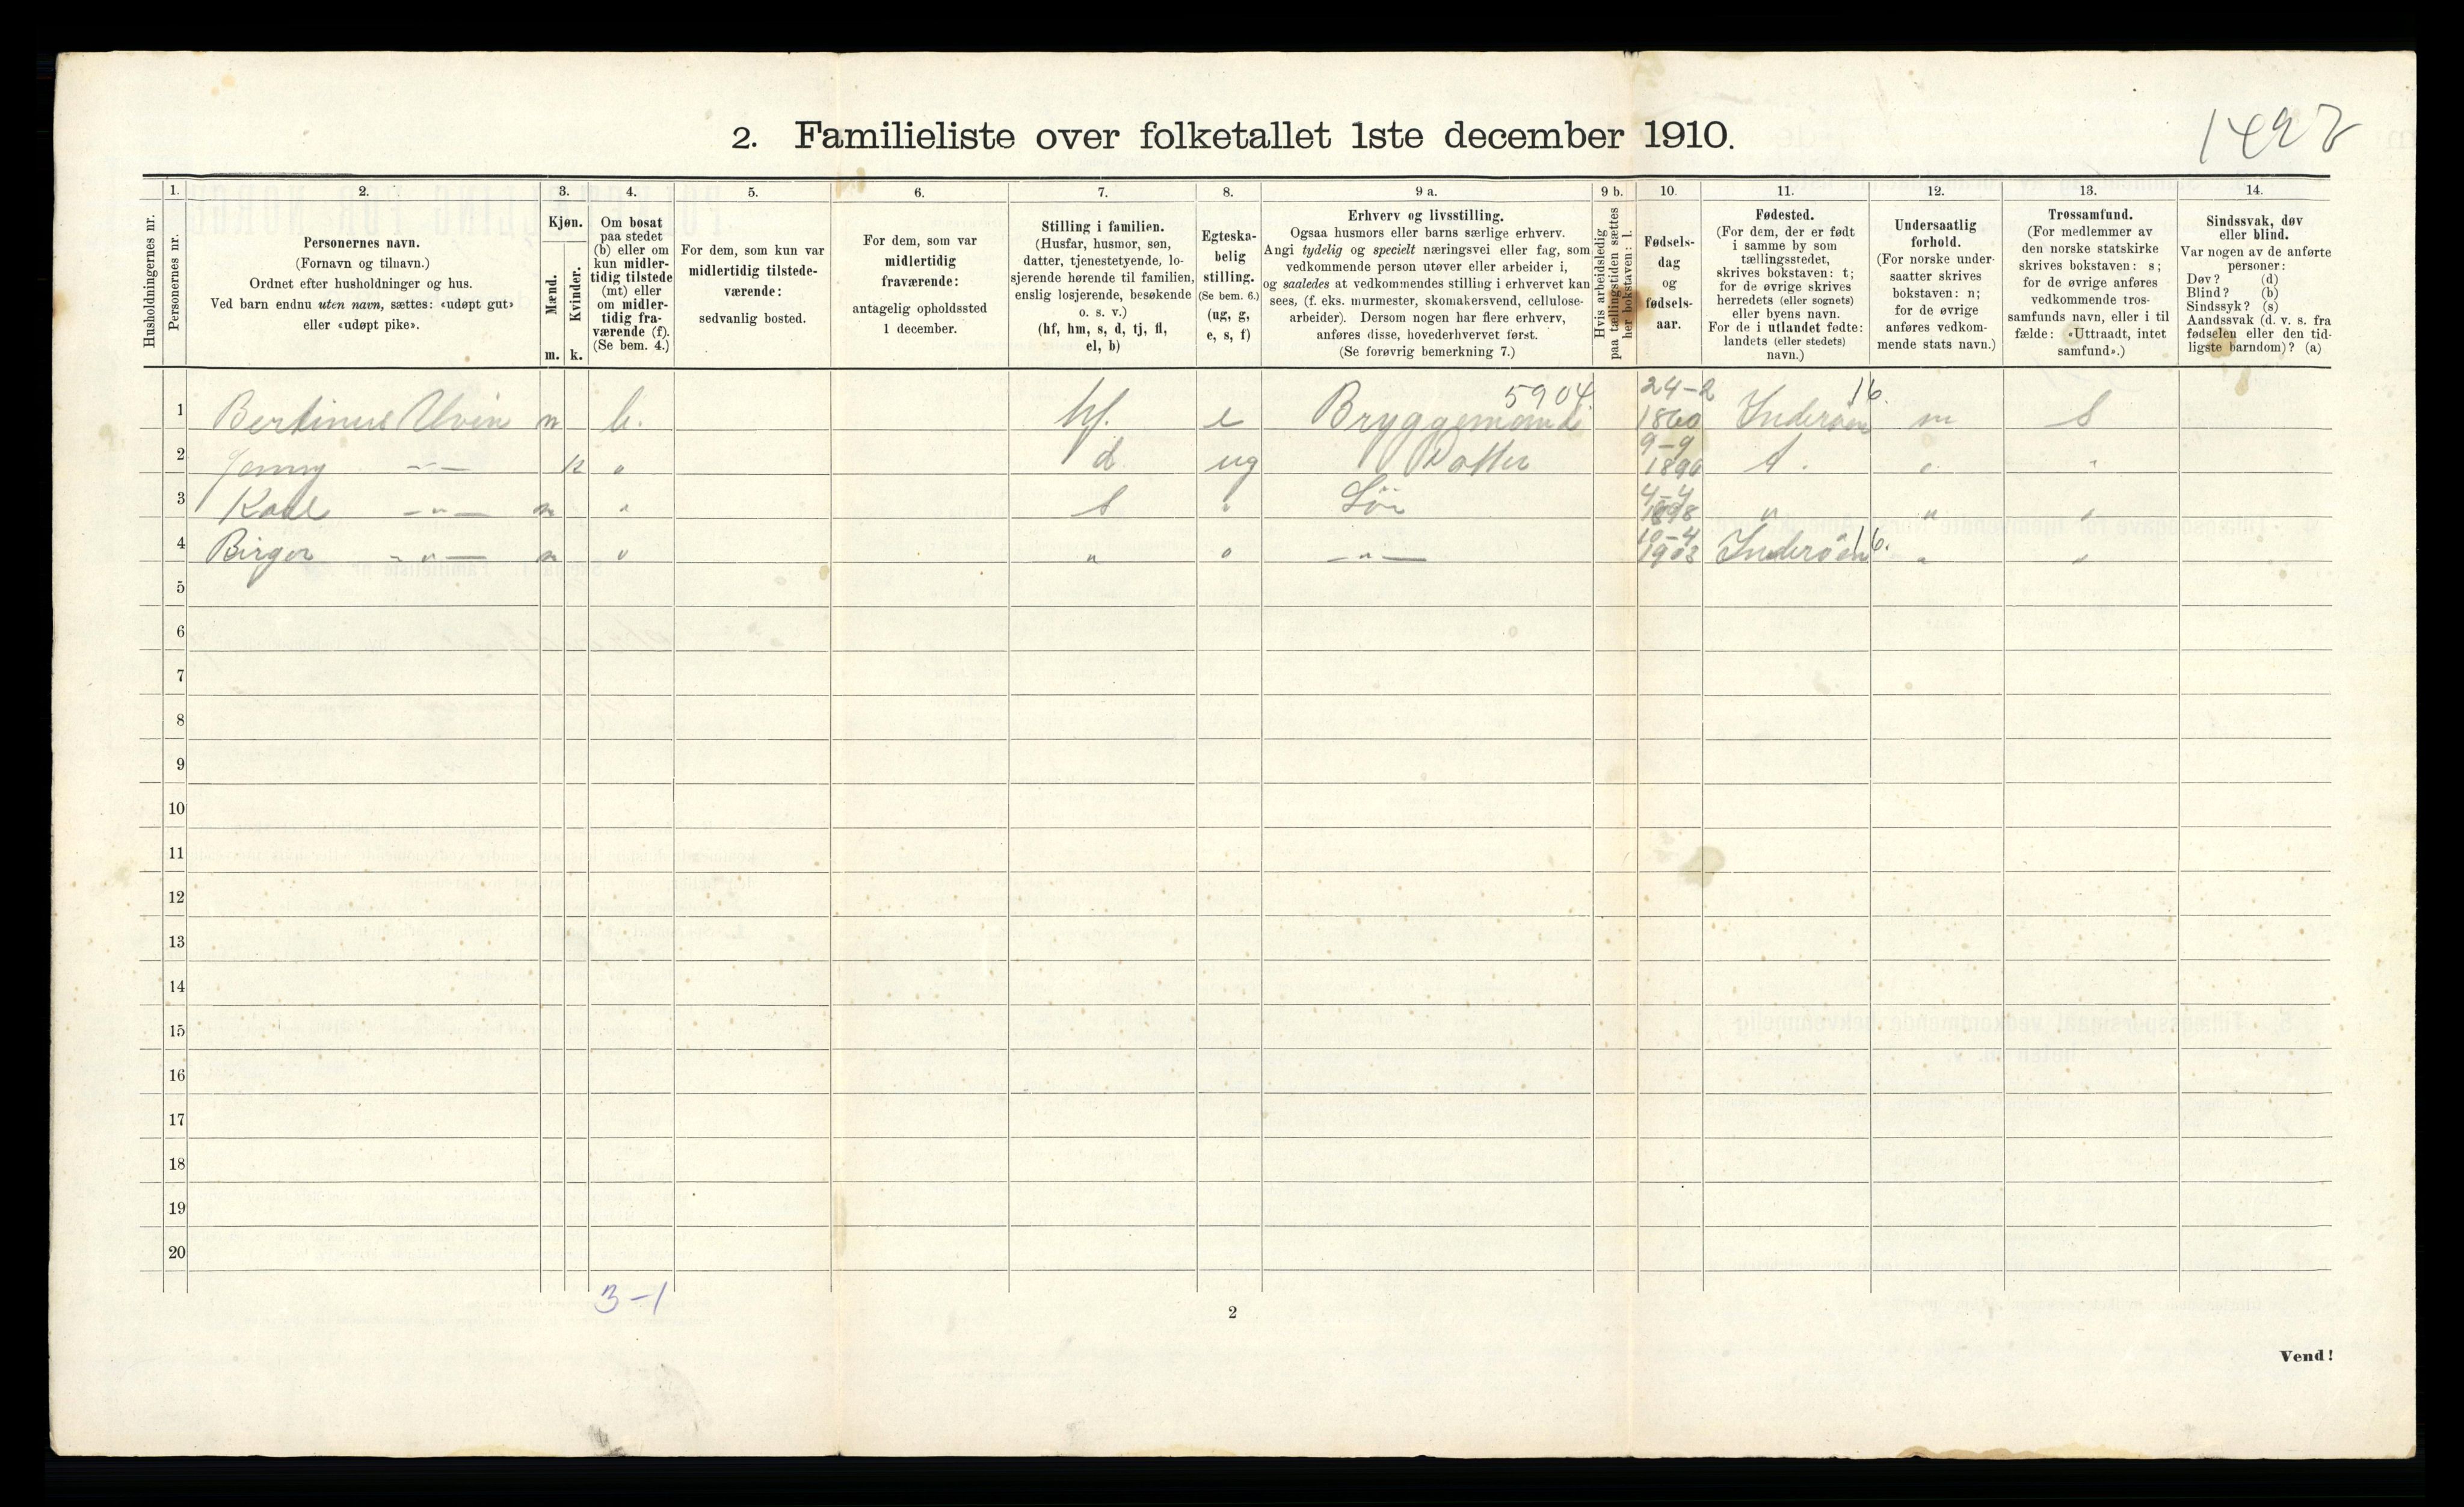 2. Familieliste over folketallet 1ste december 1910.
1492
Husholdningernes nr.
1.
Personernes nr.
2.
Personernes navn.
(Fornavn og tilnavn.)
Ordnet efter husholdninger og hus.
Ved barn endnu uten navn, sættes: «udøpt gut»
eller «udøpt pike».
3.
Kjøn.
Mænd.
Kvinder.
m. k.
4.
Om bosat
paa stedet
(b) eller om
kun midler-
tidig tilstede
(mt) eller
om midler-
tidig fra-
værende (f).
(Se bem. 4.)
5.
For dem, som kun var
midlertidig tilstede-
værende:
sedvanlig bosted.
6.
For dem, som var
midlertidig
fraværende:
antagelig opholdssted
1 december.
7.
Stilling i familien.
(Husfar, husmor, søn,
datter, tjenestetyende, lo-
sjerende hørende til familien,
enslig losjerende, besøkende
o. s. v.)
(hf, hm, s, d, tj, fl,
el, b)
8.
Egteska-
belig
stilling.
(Se bem. 6.)
(ug, g,
e, s, f)
9 a.
Erhverv og livsstilling.
Ogsaa husmors eller barns særlige erhverv.
Angi tydelig og specielt næringsvei eller fag, som
vedkommende person utøver eller arbeider i,
og saaledes at vedkommendes stilling i erhvervet kan
sees, (f. eks. murmester, skomakersvend, cellulose-
arbeider). Dersom nogen har flere erhverv,
anføres disse, hovederhvervet først.
(Se forøvrig bemerkning 7.)
9 b.
Hvis arbeidsledig
paa tællingstiden sættes
her bokstaven: l.
10.
Fødsels-
dag
og
fødsels-
aar.
11.
Fødested.
(For dem, der er født
i samme by som
tællingsstedet,
skrives bokstaven: t;
for de øvrige skrives
herredets (eller sognets)
eller byens navn.
For de i utlandet fødte:
landets (eller stedets)
navn.)
12.
Undersaatlig
forhold.
(For norske under-
saatter skrives
bokstaven: n;
for de øvrige
anføres vedkom-
mende stats navn.)
13.
Trossamfund.
(For medlemmer av
den norske statskirke
skrives bokstaven: s;
for de øvrige anføres
vedkommende tros-
samfunds navn, eller i til
fælde: «Uttraadt, intet
samfund».)
14.
Sindssvak, døv
eller blind.
Var nogen av de anførte
personer:
Døv? (d)
Blind? (b)
Sindssyk? (s)
Aandssvak (d. v. s. fra
fødselen eller den tid-
ligste barndom)? (a)
5904 24-2 16.
1 Bertinus Alvin m b. hf. e Bryggemand 1860 Inderøen n S
9-9
2 Jenny -"- k " d ug Datter 1890 t. " "
4-4
3 Karl -"- m " s " Søn 1898 " " "
10-4 16.
4 Birger -"- m " " " -"- 1903 Inderøen " "
5
6
7
8
9
10
11
12
13
14
15
16
17
18
19
20
3-1
2
Vend!